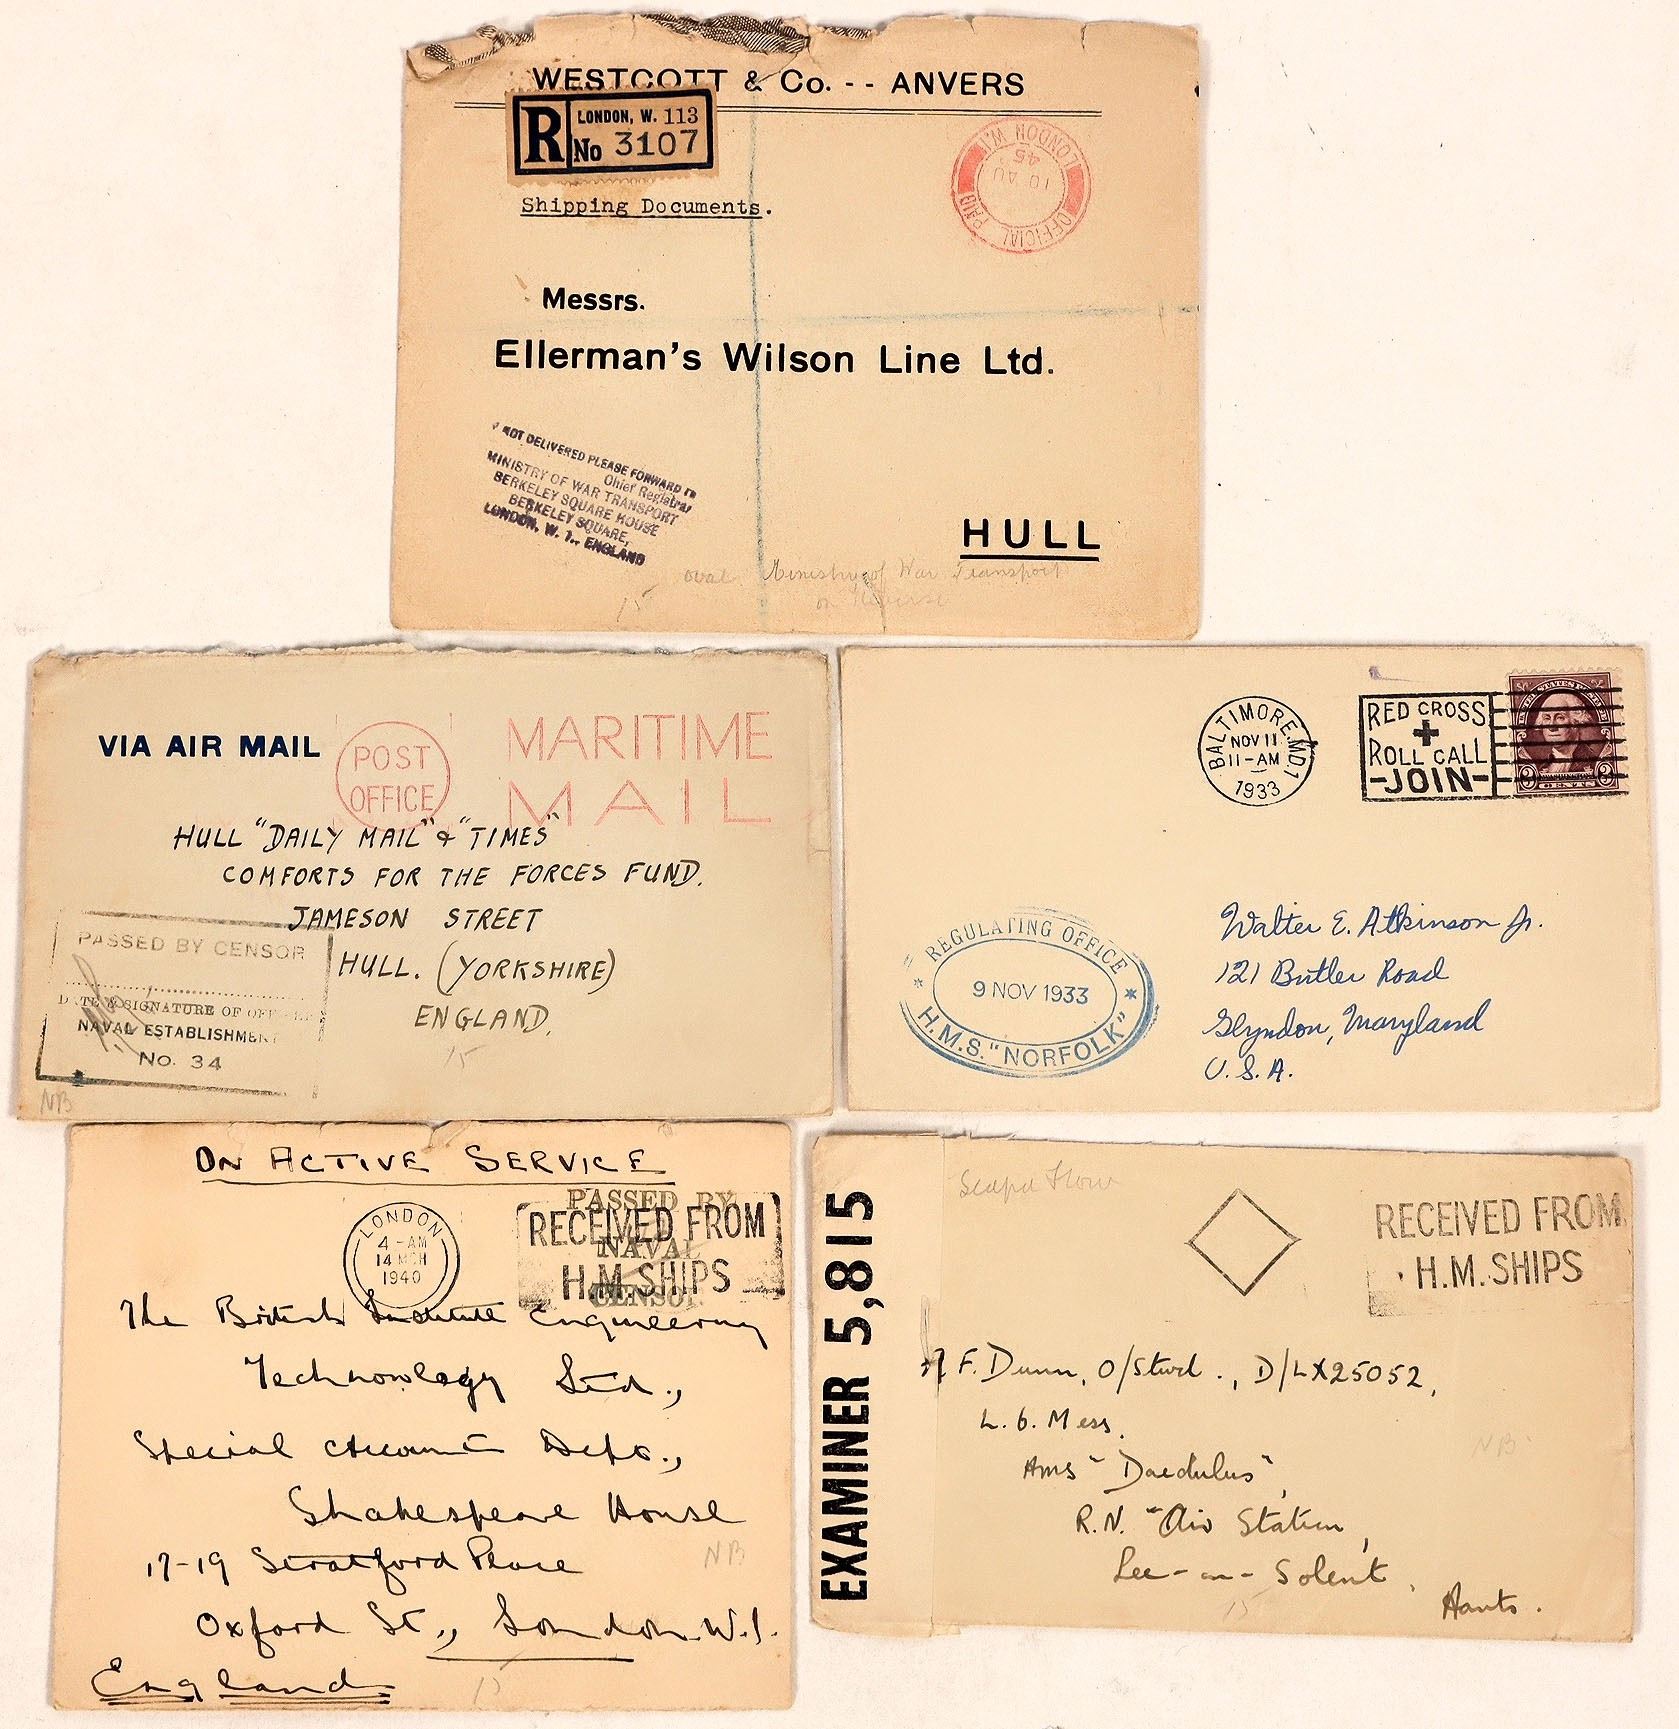 WESTCOTT & Co. -- ANVERS
R LONDON, W. 113
No 3107
LONDON W.1
10 AU 45
OFFICIAL PAID
Shipping Documents.
Messrs.
Ellerman's Wilson Line Ltd.
HULL
NOT DELIVERED PLEASE FORWARD TO
Chief Registrar
MINISTRY OF WAR TRANSPORT
BERKELEY SQUARE HOUSE
BERKELEY SQUARE,
LONDON, W. 1., ENGLAND
oval Ministry of War Transport
on Reverse
15
VIA AIR MAIL
POST OFFICE
MARITIME
MAIL
HULL "DAILY MAIL" & "TIMES"
COMFORTS FOR THE FORCES FUND.
JAMESON STREET
HULL. (YORKSHIRE)
ENGLAND.
PASSED BY CENSOR
DATE & SIGNATURE OF
NAVAL ESTABLISHMENT
No. 34
15
NB
BALTIMORE, MD. 1
NOV 11
11-AM
1933
RED CROSS
ROLL CALL
-JOIN-
UNITED STATES POSTAGE
WASHINGTON
3 CENTS 3
REGULATING OFFICE
9 NOV 1933
H.M.S. "NORFOLK"
Walter E. Atkinson Jr.
121 Butler Road
Glyndon, Maryland
U.S.A.
ON ACTIVE SERVICE
LONDON
4-AM
14 MCH
1940
PASSED BY
NAVAL
CENSOR
RECEIVED FROM
H.M. SHIPS
The British Institute Engineering
Technology Ltd.,
Special Accounts Dept.,
Shakespeare House
17-19 Stratford Place
Oxford St., London. W.1.
England
NB
15
EXAMINER 5,815
Scapa Flow
RECEIVED FROM
H.M. SHIPS
F. Dunn, O/Stwd., D/LX25052,
L. 6. Mess.
HMS "Daedulus",
R.N. Air Station,
Lee-on-Solent,
Hants.
NB
15